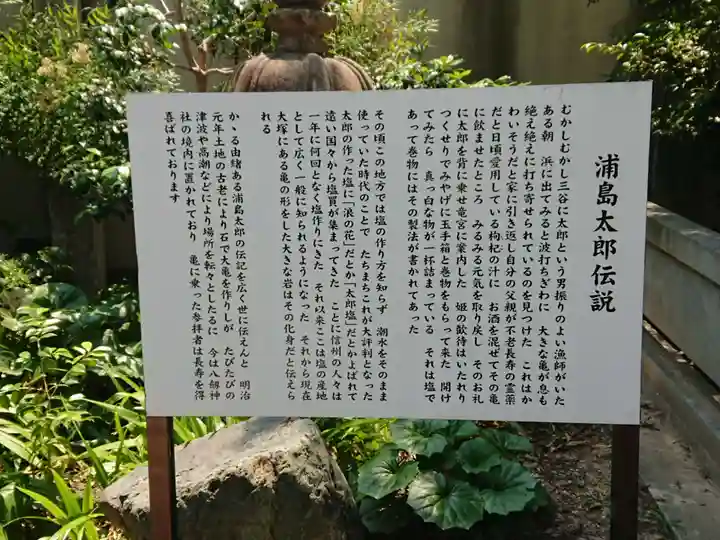 浦島太郎伝説
むかしむかし三谷に太郎という男振りのよい漁師がいた
ある朝　浜に出てみると波打ちぎわに　大きな亀が息も
絶え絶えに打ち寄せられているのを見つけた　これはか
わいそうだと家に引き返し自分の父親が不老長寿の霊薬
だと日頃愛用している枸杞の汁に　お酒を混ぜてその亀
に飲ませたところ　みるみる元気を取り戻し　そのお礼
に太郎を背に乗せ竜宮に案内した　姫の歓待はいたれり
つくせりでみやげに玉手箱と巻物をもらって来た　開け
てみたら　真っ白な物が一杯詰まっている　それは塩で
あって巻物にはその製法が書かれてあった
その頃この地方では塩の作り方を知らず　潮水をそのまま
使っていた時代のことで　たちまちこれが大評判となった
太郎の作った塩に「浪の花」だとか「太郎塩」だとかよばれて
遠い国々から塩買が集まってきた　ことに信州の人々は
一年に何回となく塩作りにきた　それ以来ここは塩の産地
として広く一般に知られるようになった　それから現在
大塚にある亀の形をした大きな岩はその化身だと伝えら
れる
かゝる由緒ある浦島太郎の伝記を広く世に伝えんと　明治
元年土地の古老により石で大亀を作りしが　たびたびの
津波や高潮などにより場所を転々としたるに　今は八剱神
社の境内に置かれており　亀に乗った参拝者は長寿を得
喜ばれております